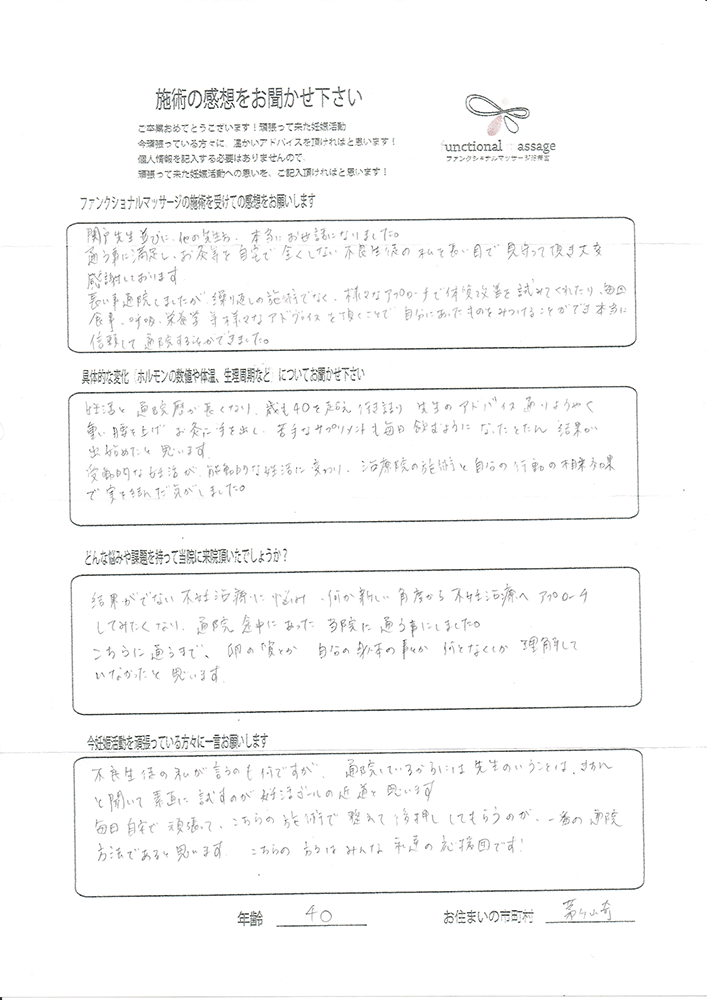 施術の感想をお聞かせ下さい
ご卒業おめでとうございます！頑張って来た妊娠活動
今頑張っている方々に、温かいアドバイスを頂ければと思います！
個人情報を記入する必要はありませんので、
頑張って来た妊娠活動への思いを、ご記入頂ければと思います！
functional massage
ファンクショナルマッサージ治療室
ファンクショナルマッサージの施術を受けての感想をお願いします
関戸先生並びに、他の先生方、本当にお世話になりました。
通う事に満足し、お灸等を自宅で全くしない不良生徒の私を長い目で見守って頂き大変
感謝しております
長い事通院しましたが、繰り返しの施術でなく、様々なアプローチで体質改善を試みてくれたり、毎回
食事、呼吸、栄養学等様々なアドヴァイスを頂くことで自分にあったものをみつけることができ本当に
信頼して通院する事ができました。
具体的な変化（ホルモンの数値や体温、生理周期など）についてお聞かせ下さい
妊活と通院歴が長くなり、歳も40を超え行き詰り先生のアドバイスありようやく
重い腰を上げお灸に手を出し、苦手なサプリメントも毎日飲むようになったとたん結果が
出始めたと思います
受動的な妊活が、能動的な妊活に変わり、治療院の施術と自分の行動の相乗効果
で実を結んだ気がしました。
どんな悩みや課題を持って当院に来院頂いたでしょうか？
結果がでない不妊治療に悩み、何か新しい角度から不妊治療へアプローチ
してみたくなり、通院途中にあった当院に通う事にしました。
こちらに通うまで、卵の質とか自分の身体の事とか何となくしか理解して
いなかったと思います
今妊娠活動を頑張っている方々に一言お願いします
不良生徒の私が言うのも何ですが、通院しているからには先生のいうことは、きちんと
と聞いて素直に試すのが妊活ゴールの近道と思います
毎日自宅で頑張って、こちらの施術で整えて後押ししてもらうのが、一番の通院
方法であると思います こちらの方々はみんな永遠の応援団です！
年齢 40 お住まいの市町村 茅ヶ崎